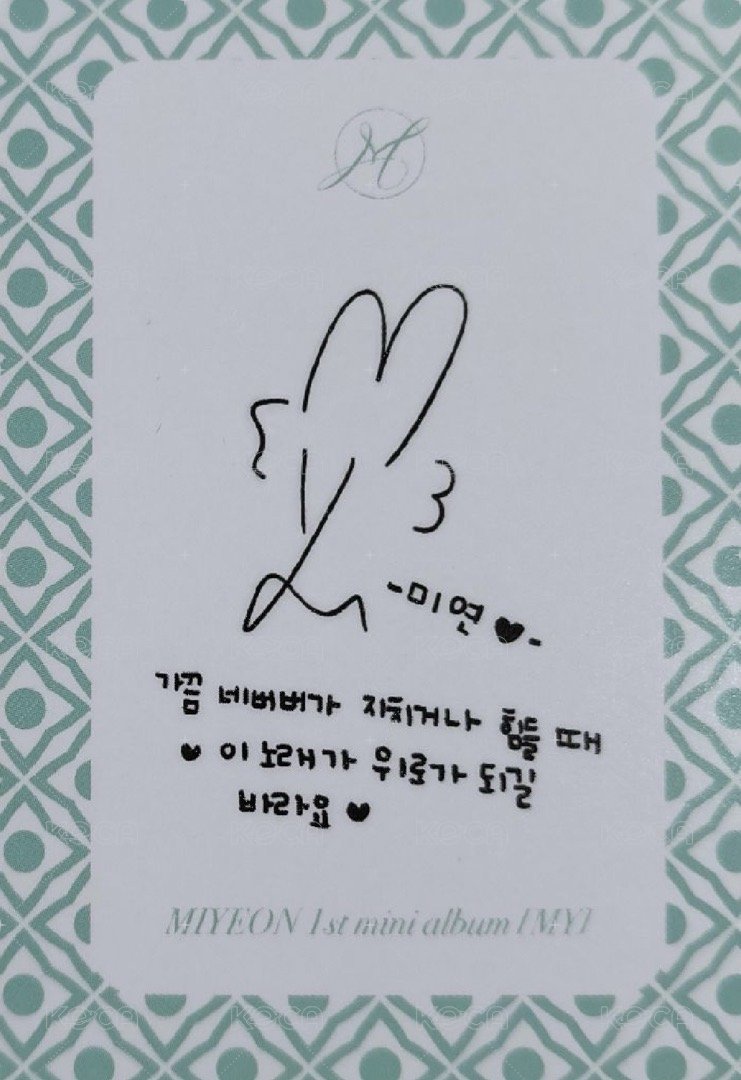 M
-미연♥-
가끔 네버버가 지치거나 힘들 때
♥ 이 노래가 위로가 되길
바라요 ♥
MIYEON 1st mini album [MY]
KOCA